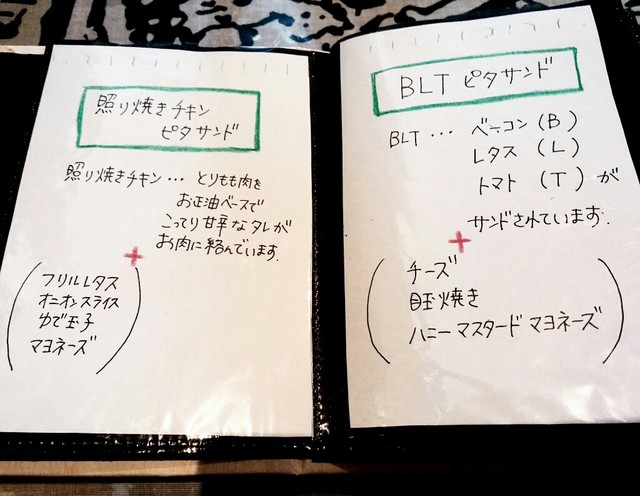 照り焼きチキン
ピタサンド
照り焼きチキン… とりもも肉を
お正油ベースで
こってり甘辛なタレが
お肉に絡んでいます.
+
フリルレタス
オニオンスライス
ゆで玉子
マヨネーズ
BLT ピタサンド
BLT … ベーコン (B)
レタス (L)
トマト (T) が
サンドされています.
+
チーズ
目玉焼き
ハニーマスタードマヨネーズ